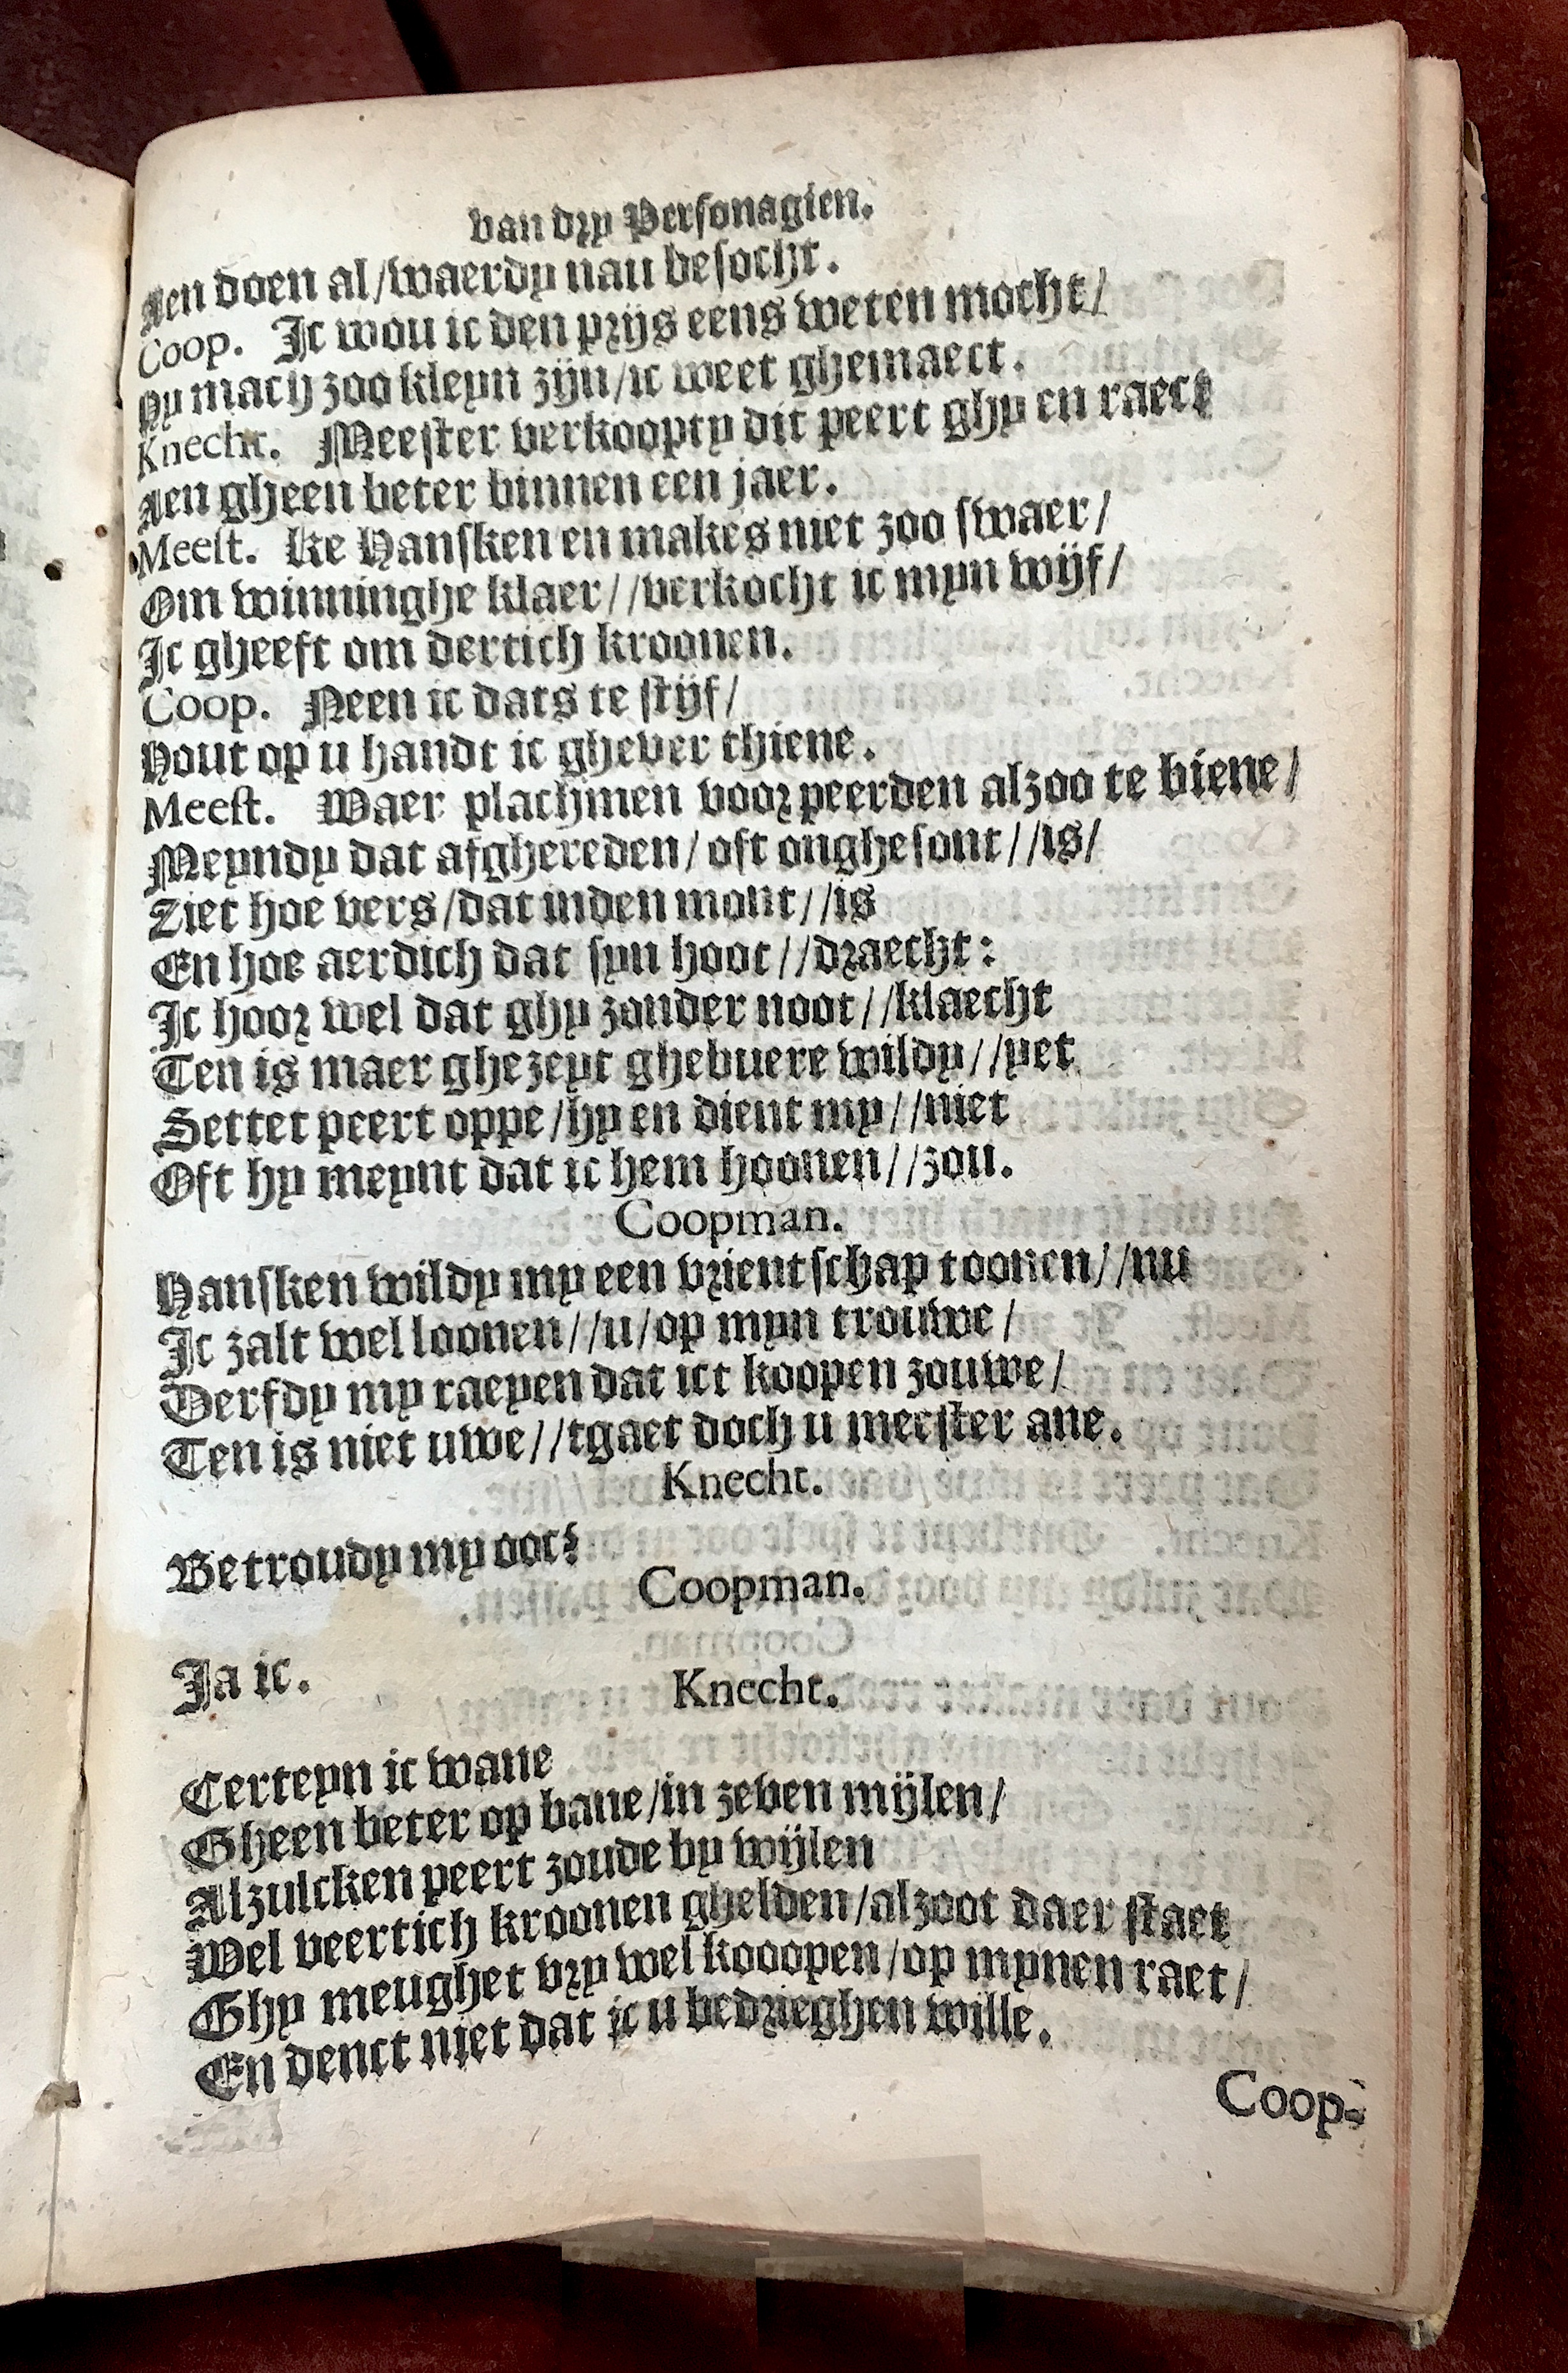 van dry Personagien.
Aen doen al/waerdy nau besocht.
Coop. Ic wou ic den prijs eens weten mocht/
Hy mach zoo kleyn zijn/ic weet ghemaect.
Knecht. Meester verkoopty dit peert ghy en raect
Aen gheen beter binnen een jaer.
Meest. Ke Hansken en makes niet zoo swaer/
Om winninghe klaer//verkocht ic myn wijf/
Ic gheeft om dertich kroonen.
Coop. Neen ic dats te stijf/
Hout op u handt ic ghever thiene.
Meest. Waer plachmen voor peerden alzoo te biene/
Meyndy dat afghereden/oft onghesont//is/
Ziet hoe vers/dat inden mont//is
En hoe aerdich dat syn hoot//draecht:
Ic hoor wel dat ghy zonder noot//klaecht
Ten is maer ghezeyt ghebuere wildy//yet
Settet peert oppe/hy en dient my//niet
Oft hy meynt dat ic hem hoonen//zou.
Coopman.
Hansken wildy my een vrientschap toonen//nu
Ic zalt wel loonen//u/op myn trouwe/
Derfdy my raeyen dat ict koopen zouwe/
Ten is niet uwe//tgaet doch u meester ane.
Knecht.
Betroudy my ooc?
Coopman.
Ja ic.
Knecht.
Certeyn ic wane
Gheen beter op bane/in zeven mijlen/
Alzulcken peert zoude by wijlen
Wel veertich kroonen ghelden/alzoot daer staet
Ghy meughet vry wel kooopen/op mynen raet/
En denct niet dat ic u bedrieghen wille.
Coop-